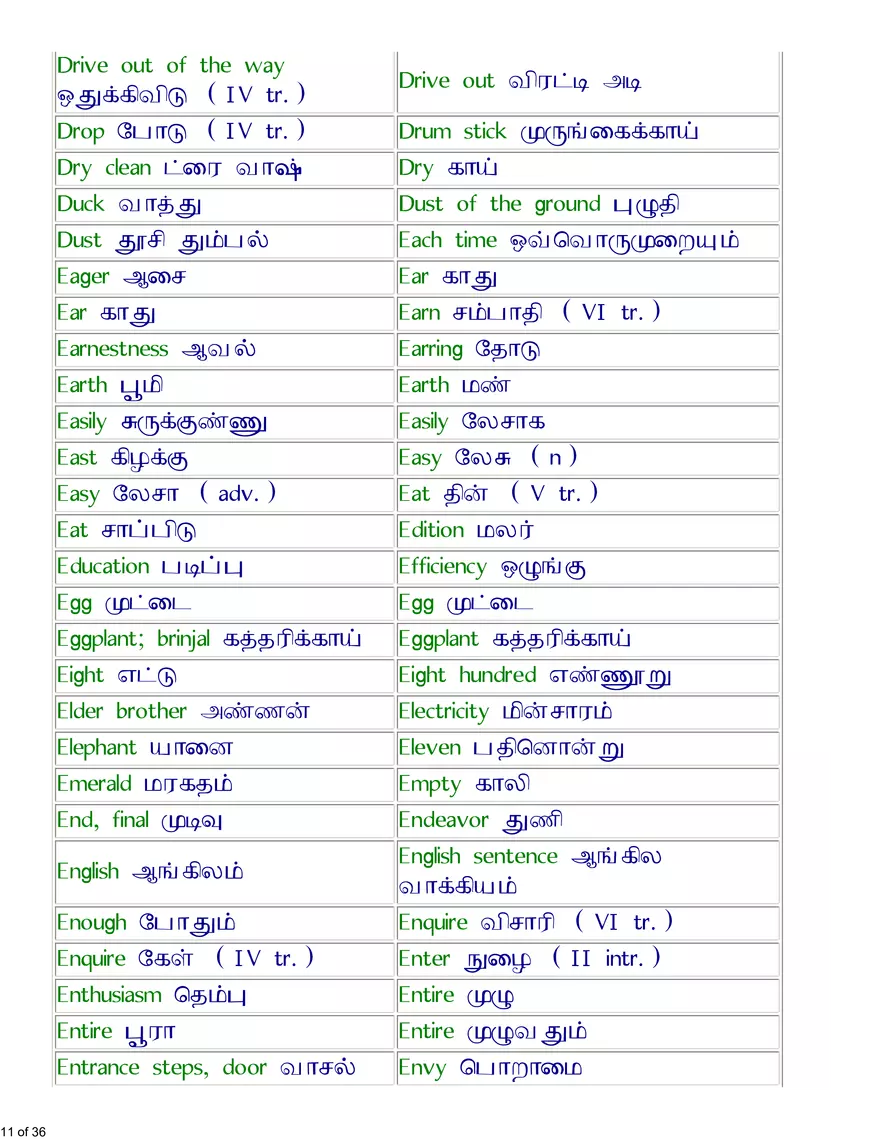 Drive out of the way
ஒதுக்கிவிடு ( IV tr. )
Drive out விரட்டி அடி
Drop போடு ( IV tr. )
Drum stick முருங்கைக்காய்
Dry clean ட்ரை வாஷ்
Dry காய்
Duck வாத்து
Dust of the ground புழுதி
Dust தூசி தும்பல்
Each time ஒவ்வொருமுறையும்
Eager ஆசை
Ear காது
Ear காது
Earn சம்பாதி ( VI tr. )
Earnestness ஆவல்
Earring தோடு
Earth பூமி
Earth மண்
Easily சுருக்குண்ணு
Easily லேசாக
East கிழக்கு
Easy லேசு ( n )
Easy லேசா ( adv. )
Eat தின் ( V tr. )
Eat சாப்பிடு
Edition மலர்
Education படிப்பு
Efficiency ஒழுங்கு
Egg முட்டை
Egg முட்டை
Eggplant; brinjal கத்தரிக்காய்
Eggplant கத்தரிக்காய்
Eight எட்டு
Eight hundred எண்ணூறு
Elder brother அண்ணன்
Electricity மின்சாரம்
Elephant யானை
Eleven பதினொன்று
Emerald மரகதம்
Empty காலி
End, final முடிவு
Endeavor துணி
English ஆங்கிலம்
English sentence ஆங்கில
வாக்கியம்
Enough போதும்
Enquire விசாரி ( VI tr. )
Enquire கேள் ( IV tr. )
Enter நுழை ( II intr. )
Enthusiasm தெம்பு
Entire முழு
Entire பூரா
Entire முழுவதும்
Entrance steps, door வாசல்
Envy பொறாமை
11 of 36